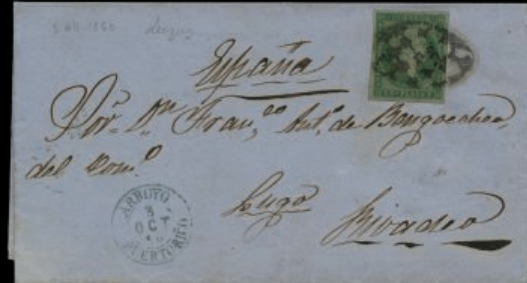 España
Sor Dn Franco Anto de Bengoechea
del Como
Lugo Rivadeo
ARROYO
3
OCT
PUERTO RICO